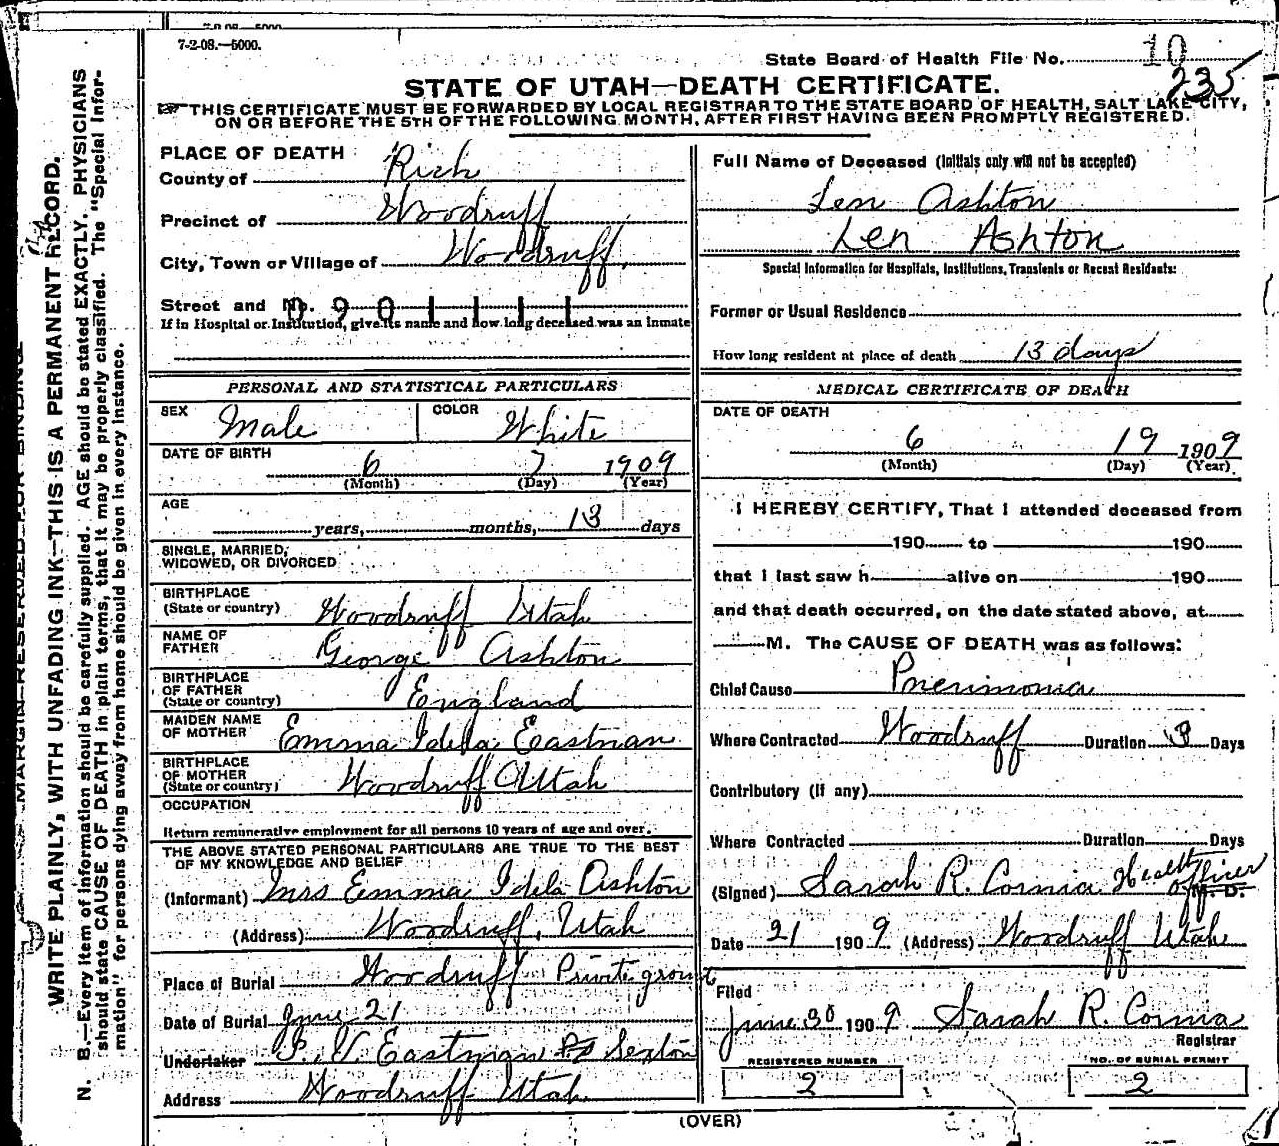 7-2-08.—5000.
State Board of Health File No. 10
235
STATE OF UTAH—DEATH CERTIFICATE.
THIS CERTIFICATE MUST BE FORWARDED BY LOCAL REGISTRAR TO THE STATE BOARD OF HEALTH, SALT LAKE CITY,
ON OR BEFORE THE 5TH OF THE FOLLOWING MONTH, AFTER FIRST HAVING BEEN PROMPTLY REGISTERED.
MARGIN RESERVED FOR BINDING
WRITE PLAINLY, WITH UNFADING INK—THIS IS A PERMANENT RECORD.
N. B.—Every item of information should be carefully supplied. AGE should be stated EXACTLY. PHYSICIANS
should state CAUSE OF DEATH in plain terms, that it may be properly classified. The "Special Infor-
mation" for persons dying away from home should be given in every instance.
PLACE OF DEATH
County of Rich
Precinct of Woodruff
City, Town or Village of Woodruff,
Street and No. 0901111
If in Hospital or Institution, give its name and how long deceased was an inmate
PERSONAL AND STATISTICAL PARTICULARS
SEX Male COLOR White
DATE OF BIRTH
6 7 1909
(Month) (Day) (Year)
AGE
years, months, 13 days
SINGLE, MARRIED,
WIDOWED, OR DIVORCED
BIRTHPLACE
(State or country) Woodruff Utah
NAME OF
FATHER George Ashton
BIRTHPLACE
OF FATHER
(State or country) England
MAIDEN NAME
OF MOTHER Emma Idela Eastman
BIRTHPLACE
OF MOTHER
(State or country) Woodruff Utah
OCCUPATION
Return remunerative employment for all persons 10 years of age and over.
THE ABOVE STATED PERSONAL PARTICULARS ARE TRUE TO THE BEST
OF MY KNOWLEDGE AND BELIEF
(Informant) Mrs Emma Idela Ashton
(Address) Woodruff, Utah
Place of Burial Woodruff Private ground
Date of Burial June 21
Undertaker P. V. Eastman Sexton
Address Woodruff Utah
Full Name of Deceased (Initials only will not be accepted)
Len Ashton
Len Ashton
Special Information for Hospitals, Institutions, Transients or Recent Residents:
Former or Usual Residence
How long resident at place of death 13 days
MEDICAL CERTIFICATE OF DEATH
DATE OF DEATH
6 19 1909
(Month) (Day) (Year)
I HEREBY CERTIFY, That I attended deceased from
190 to 190
that I last saw h alive on 190
and that death occurred, on the date stated above, at
M. The CAUSE OF DEATH was as follows:
Chief Cause Pneumonia
Where Contracted Woodruff Duration 3 Days
Contributory (if any)
Where Contracted Duration Days
(Signed) Sarah R. Cornia Health Officer M. D.
Date 21 1909 (Address) Woodruff Utah
Filed
June 30 1909 Sarah R. Cornia
Registrar
REGISTERED NUMBER
2
NO. OF BURIAL PERMIT
2
(OVER)